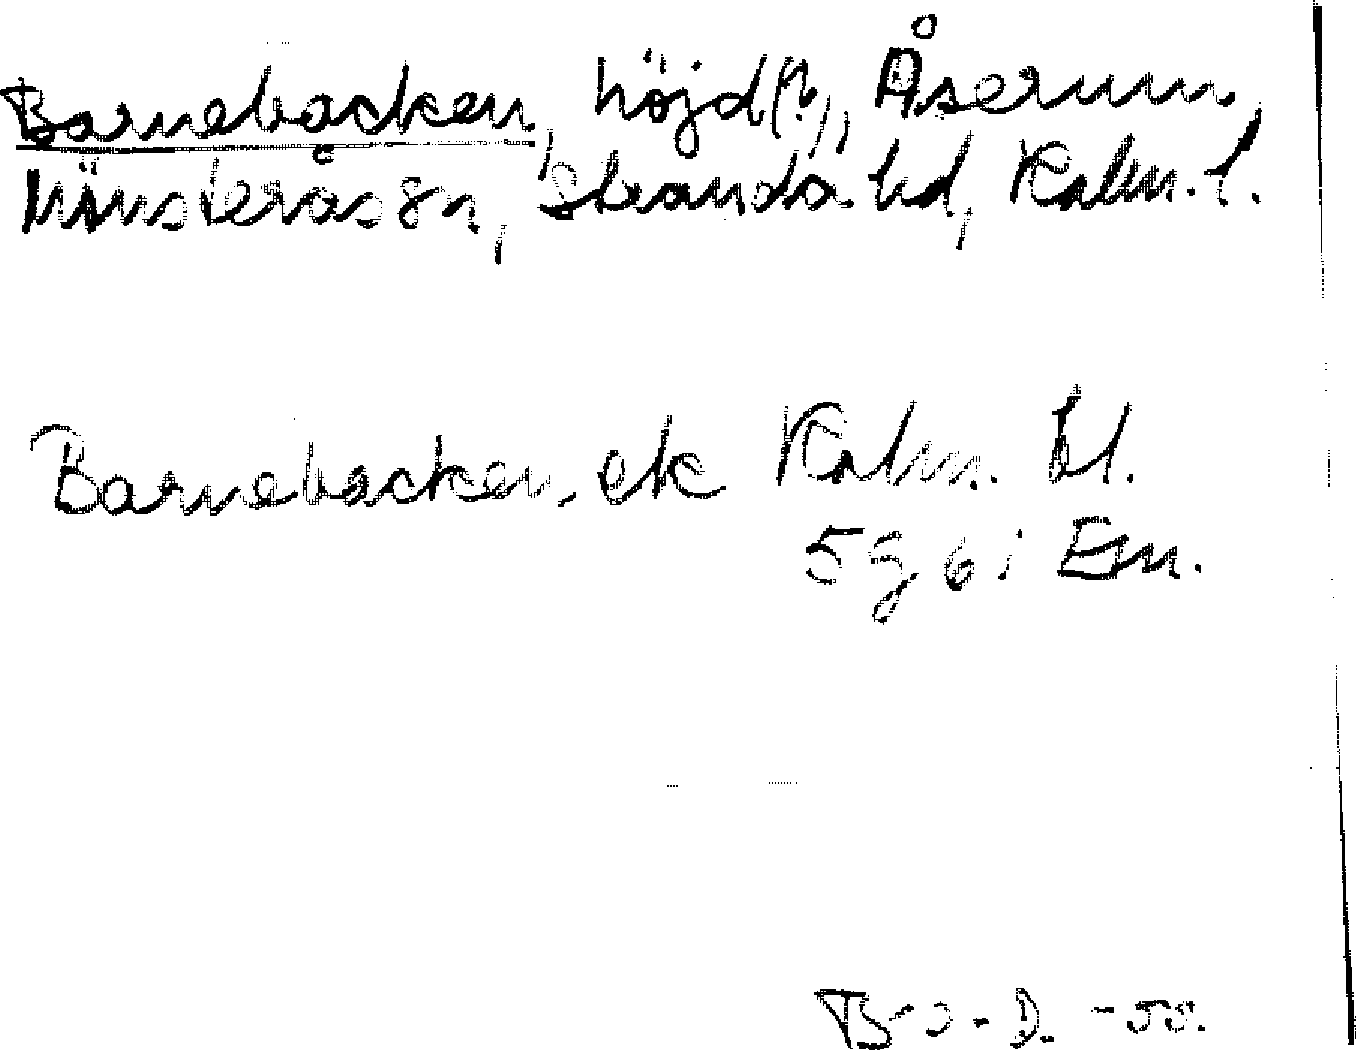 Barnebacken, höjd(?), Åserum,
Mönsterås sn, Stranda hd, Kalm. l.
Barnebacken. ek Kalm. bl.
5 g 6 i Em.
B-s - D. -55.